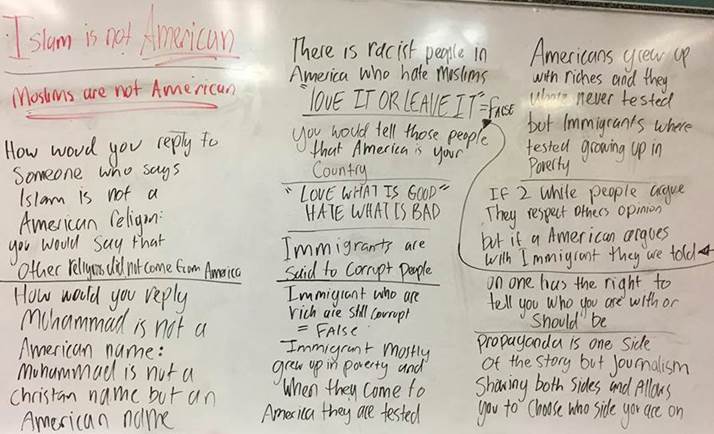 Islam is not American
Moslims are not American
How would you reply to
Someone who says
Islam is not a
American religin:
you would say that
Other religions did not come from America
How would you reply
Mohammad is not a
American name:
Muhammad is not a
Christan name but an
American name
There is racist people in
America who hate muslims
"LOVE IT OR LEAVE IT" = FALSE
you would tell those people
that America is your
Country
"LOVE WHAT IS GOOD"
HATE WHAT IS BAD
Immigrants are
said to Corrupt People
Immigrant who are
rich are still corrupt
= FAlSE
Immigrant Mostly
grew up in poverty and
when they come to
America they are tested
Americans grew up
with riches and they
never tested
but Immigrants where
tested growing up in
Poverty
If 2 white people argue
They respect others opinion
but if a American argues
with Immigrant they are told
on one has the right to
tell you who you are with or
Should be
propaganda is one side
Of the story but Journalism
Showing both sides and Allows
you to Choose who side you are on